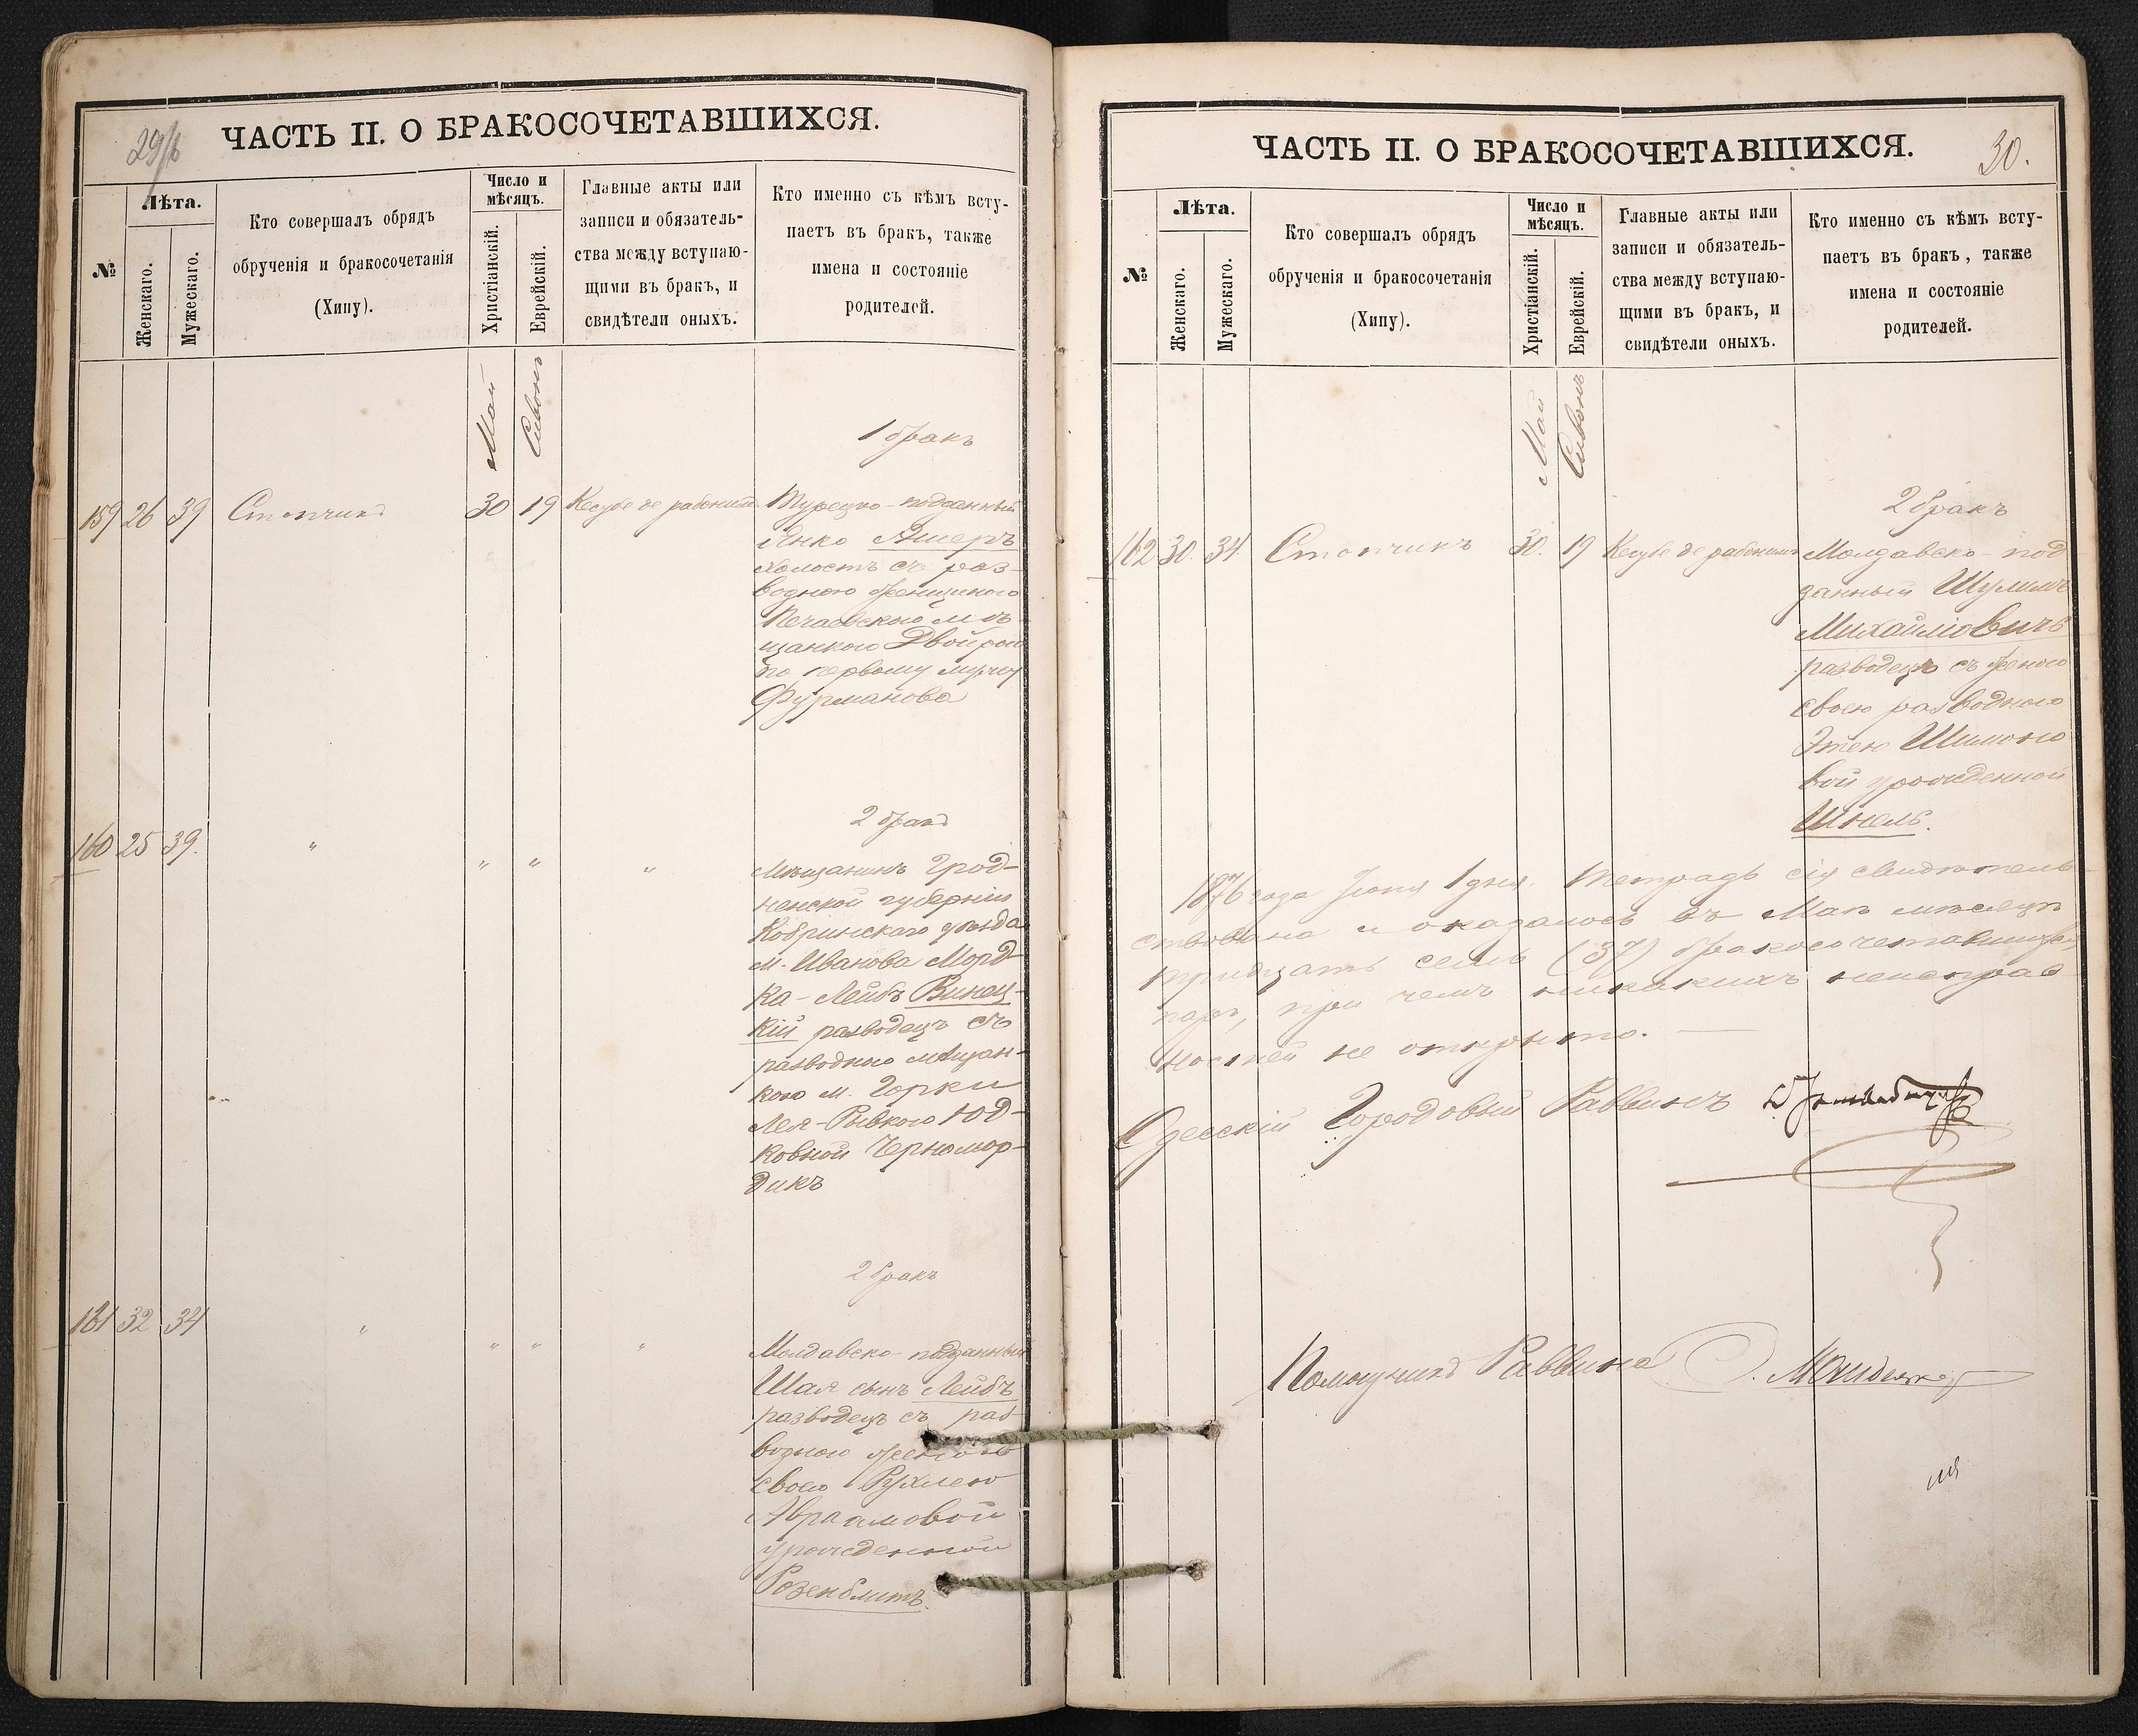 29/б
ЧАСТЬ II. О БРАКОСОЧЕТАВШИХСЯ.
№
Лѣта.
Женскаго.
Мужескаго.
Кто совершалъ обрядъ
обрученія и бракосочетанія
(Хипу).
Число и
мѣсяцъ.
Христіанскій.
Еврейскій.
Главные акты или
записи и обязатель-
ства между вступаю-
щими въ бракъ, и
свидѣтели оныхъ.
Кто именно съ кѣмъ всту-
паетъ въ бракъ, также
имена и состояніе
родителей.
Май
Сивонъ
1 бракъ
159 26 39 Стопчикъ 30 19 Кесубе де рабонимъ Турецко-подданный
Янко Ашеръ
холостъ съ раз-
водною женщиною
Нечаевскою мѣ-
щанкою Двойрою
по первому мужу
Фурманова
2 бракъ
160 25 39. " " " "
Мѣщанинъ Грод-
ненской губерніи
Кобринскаго уѣзда
м. Иванова Морд-
ка-Лейбъ Винец-
кій разводецъ съ
разводною мѣщан-
кою м. Горки
Лея-Рывкою Юд-
ковной Черномор-
дикъ
2 бракъ
161 32 34 " " " "
Молдавско-подданный
Шая сынъ Лейбъ
разводецъ съ раз-
водною женою
своею Рухлею
Авраамовой
урожденной
Розенблитъ.
ЧАСТЬ II. О БРАКОСОЧЕТАВШИХСЯ.
30.
№
Лѣта.
Женскаго.
Мужескаго.
Кто совершалъ обрядъ
обрученія и бракосочетанія
(Хипу).
Число и
мѣсяцъ.
Христіанскій.
Еврейскій.
Главные акты или
записи и обязатель-
ства между вступаю-
щими въ бракъ, и
свидѣтели оныхъ.
Кто именно съ кѣмъ всту-
паетъ въ бракъ, также
имена и состояніе
родителей.
Май
Сивонъ
2 бракъ
162 30. 34. Стопчикъ 30. 19 Кесубе де рабонимъ Молдавско-под
данный Шулимъ
Михайловичъ
разводецъ съ женою
своею разводною
Этею Шимоно
вой урожденной
Шнель.
1876 года Іюня 1 дня. Тетрадь сія свидѣтель
ствована и оказалось въ Маѣ мѣсяцѣ
тридцать семь (37) бракосочетавшихся
паръ, при чемъ никакихъ неисправ
ностей не открыто.
Одесскій Городовый Раввинъ
Помощникъ Раввина